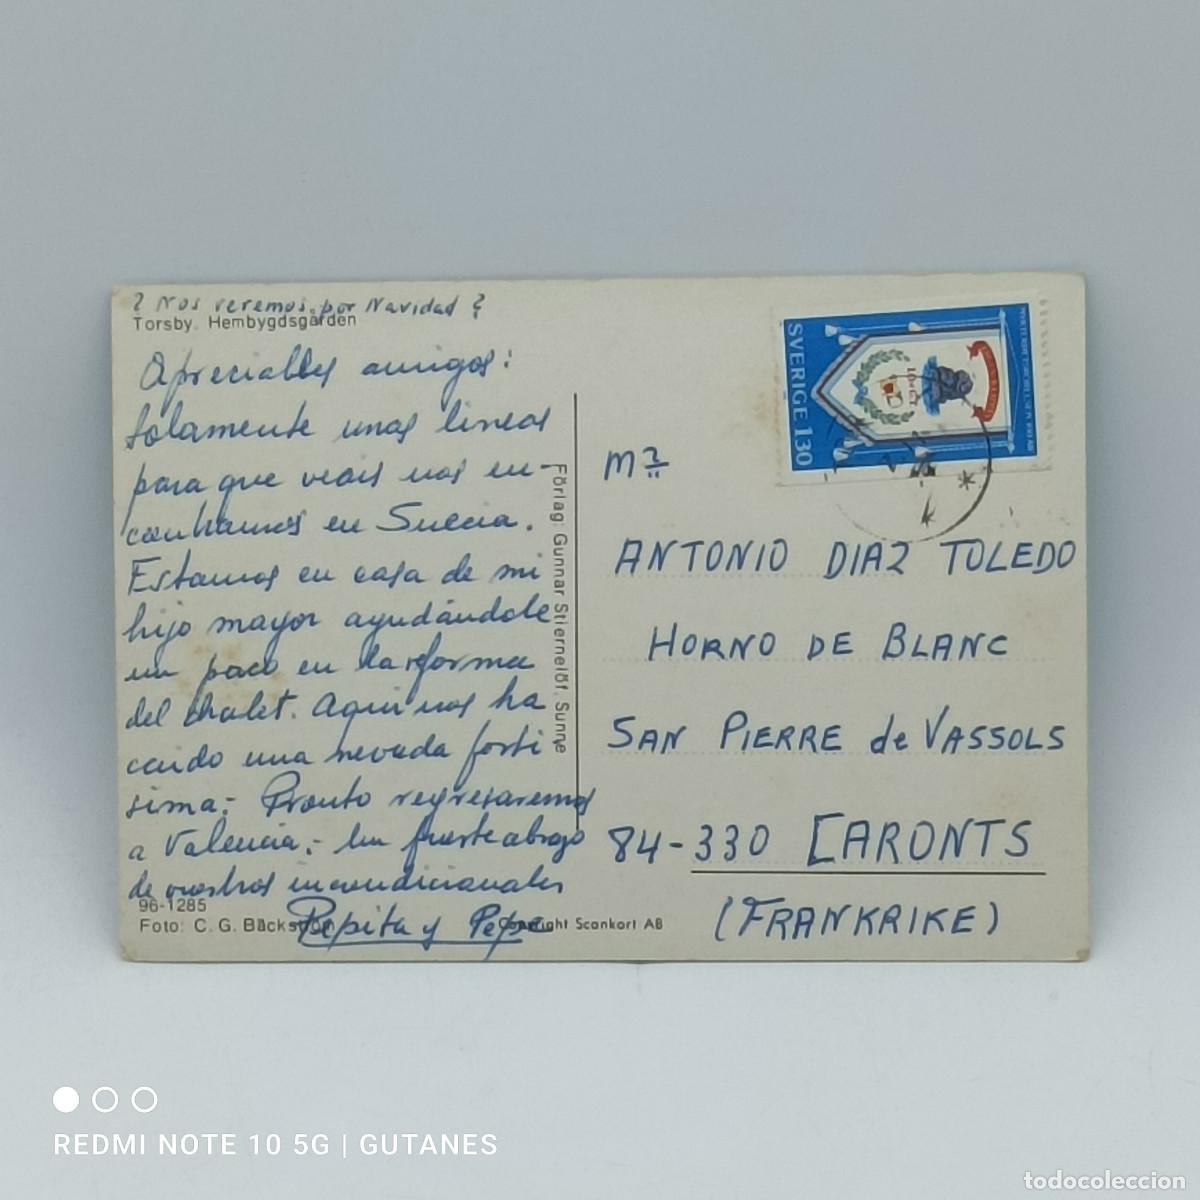 ? Nos veremos por Navidad ?
Torsby. Hembygdsgården
Apreciables amigos:
Solamente unas lineas
para que veais nos en-
contramos en Suecia.
Estamos en casa de mi
hijo mayor ayudándole
un poco en la reforma
del chalet. Aqui nos ha
caido una nevada forti
sima.- Pronto regresaremos
a Valencia.- Un fuerte abrazo
de vuestros incondicionales
Pepita y Pepe
96-1285
Foto: C. G. Bäckström
Copyright Scankort AB
Förlag: Gunnar Stiernelöf. Sunne
SVERIGE 130
IOGT
Mr
ANTONIO DIAZ TOLEDO
HORNO DE BLANC
SAN PIERRE de VASSOLS
84-330 CARONTS
(FRANKRIKE)
REDMI NOTE 10 5G | GUTANES
todocoleccion